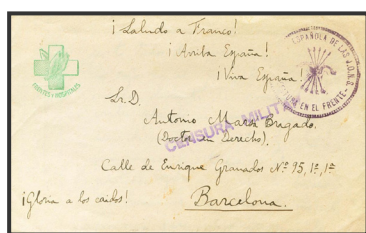 ¡Saludo a Franco!
¡Arriba España!
¡Viva España!
ESPAÑOLA DE LAS J.O.N.S.
EN EL FRENTE
FRENTES Y HOSPITALES
Sr. D.
Antonio Bragado.
(Doctor en Derecho).
CENSURA MILITAR
Calle de Enrique Granados Nº 95, 1º, 1ª
¡Gloria a los caidos!
Barcelona.